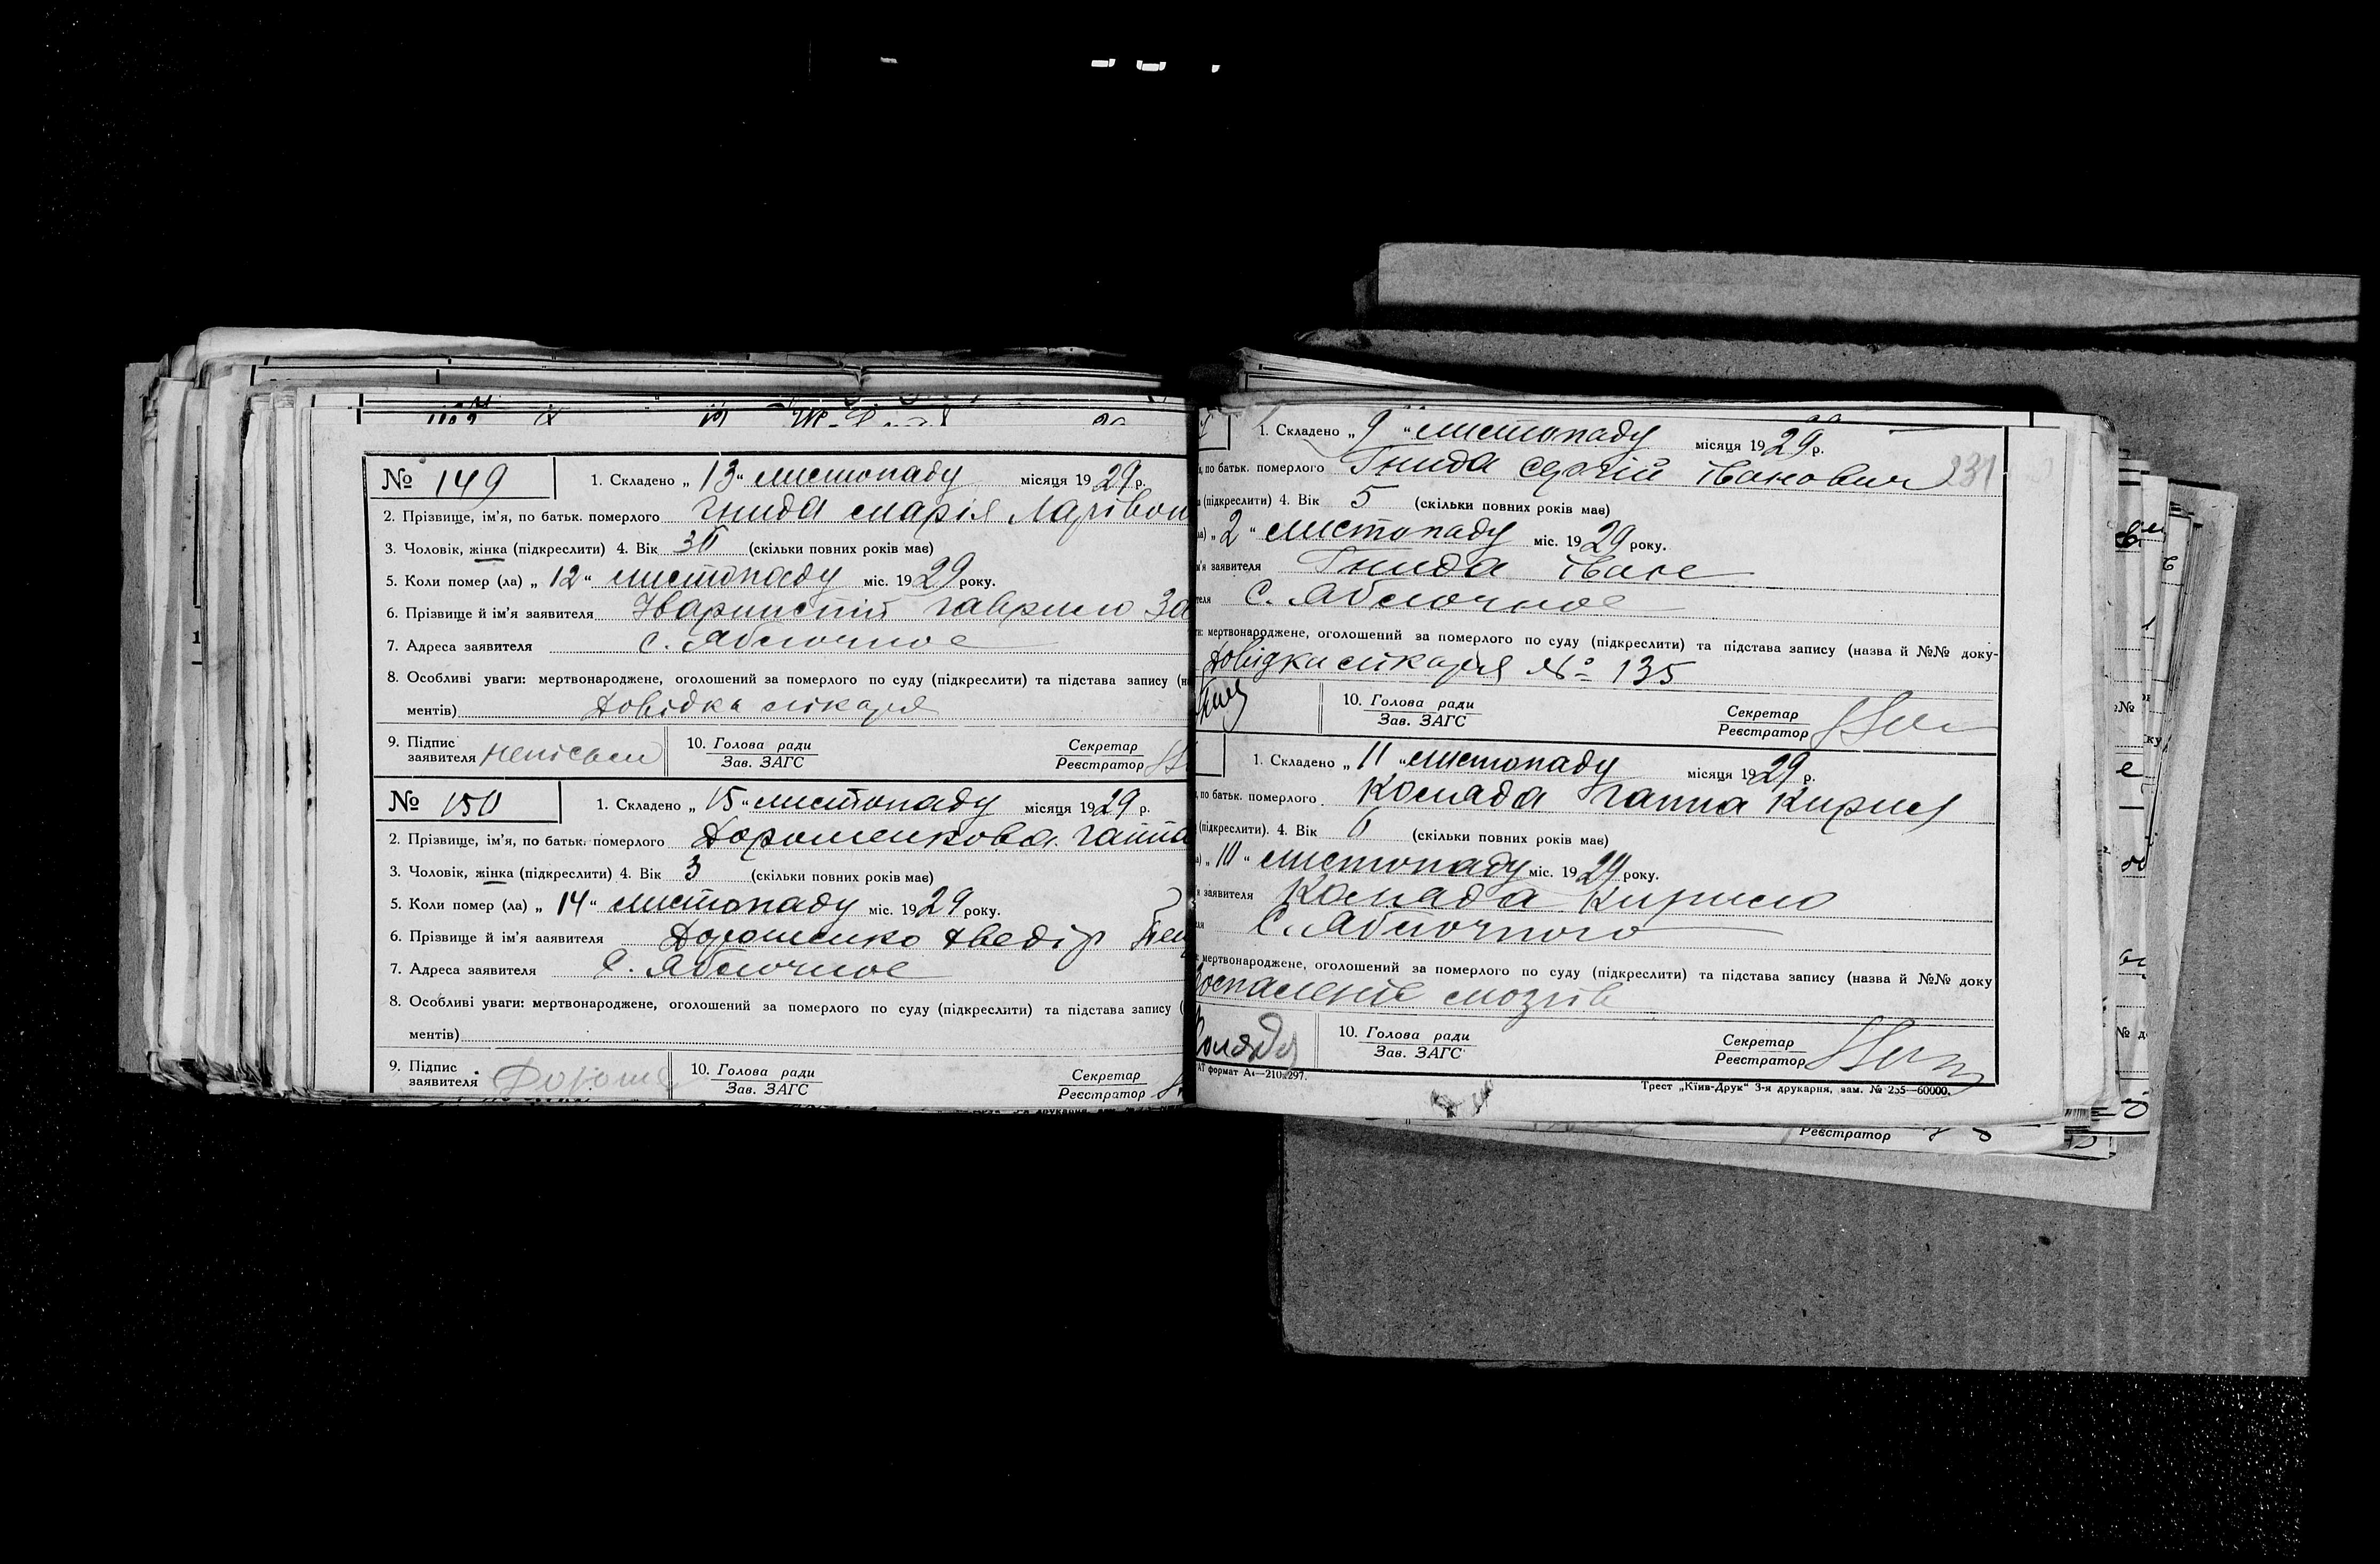 № 149
1. Складено „ 13 “ листопаду місяця 1929 р.
2. Прізвище, ім’я, по батьк. померлого Гнида Марія Ларівон
3. Чоловік, жінка (підкреслити) 4. Вік 30 (скільки повних років має)
5. Коли помер (ла) „ 12 “ листопаду міс. 1929 року.
6. Прізвище й ім’я заявителя Гаврило
7. Адреса заявителя с. Яблочное
8. Особливі уваги: мертвонароджене, оголошений за померлого по суду (підкреслити) та підстава запису
ментів) Довідка лікаря
9. Підпис заявителя
10. Голова ради
Зав. ЗАГС
Секретар
Реєстратор
№ 150
1. Складено „ 15 “ листопаду місяця 1929 р.
2. Прізвище, ім’я, по батьк. померлого Дорошенкова Ганна
3. Чоловік, жінка (підкреслити) 4. Вік 3 (скільки повних років має)
5. Коли помер (ла) „ 14 “ листопаду міс. 1929 року.
6. Прізвище й ім’я заявителя Дорошенко Хведір
7. Адреса заявителя С. Яблочное
8. Особливі уваги: мертвонароджене, оголошений за померлого по суду (підкреслити) та підстава запису (
ментів)
9. Підпис заявителя
10. Голова ради
Зав. ЗАГС
Секретар
Реєстратор
1. Складено „ 9 “ листопаду місяця 1929 р.
по батьк. померлого Гнида Сергій Іванович 231
(підкреслити) 4. Вік 5 (скільки повних років має)
„ 2 “ листопаду міс. 1929 року.
заявителя Гнида Іван
с. Яблочное
мертвонароджене, оголошений за померлого по суду (підкреслити) та підстава запису (назва й №№ доку-
Довідка лікаря № 135
10. Голова ради
Зав. ЗАГС
Секретар
Реєстратор
1. Складено „ 11 “ листопаду місяця 1929 р.
по батьк. померлого Коляда Ганна Кирил
(підкреслити). 4. Вік 6 (скільки повних років має)
„ 10 “ листопаду міс. 1929 року.
заявителя Коляда Кирило
С. Яблочного
мертвонароджене, оголошений за померлого по суду (підкреслити) та підстава запису (назва й №№ доку
Коляда
10. Голова ради
Зав. ЗАГС
Секретар
Реєстратор
формат А4—210x297.
Трест „Київ-Друк“ 3-я друкарня, зам. № 255—60000.
Реєстратор